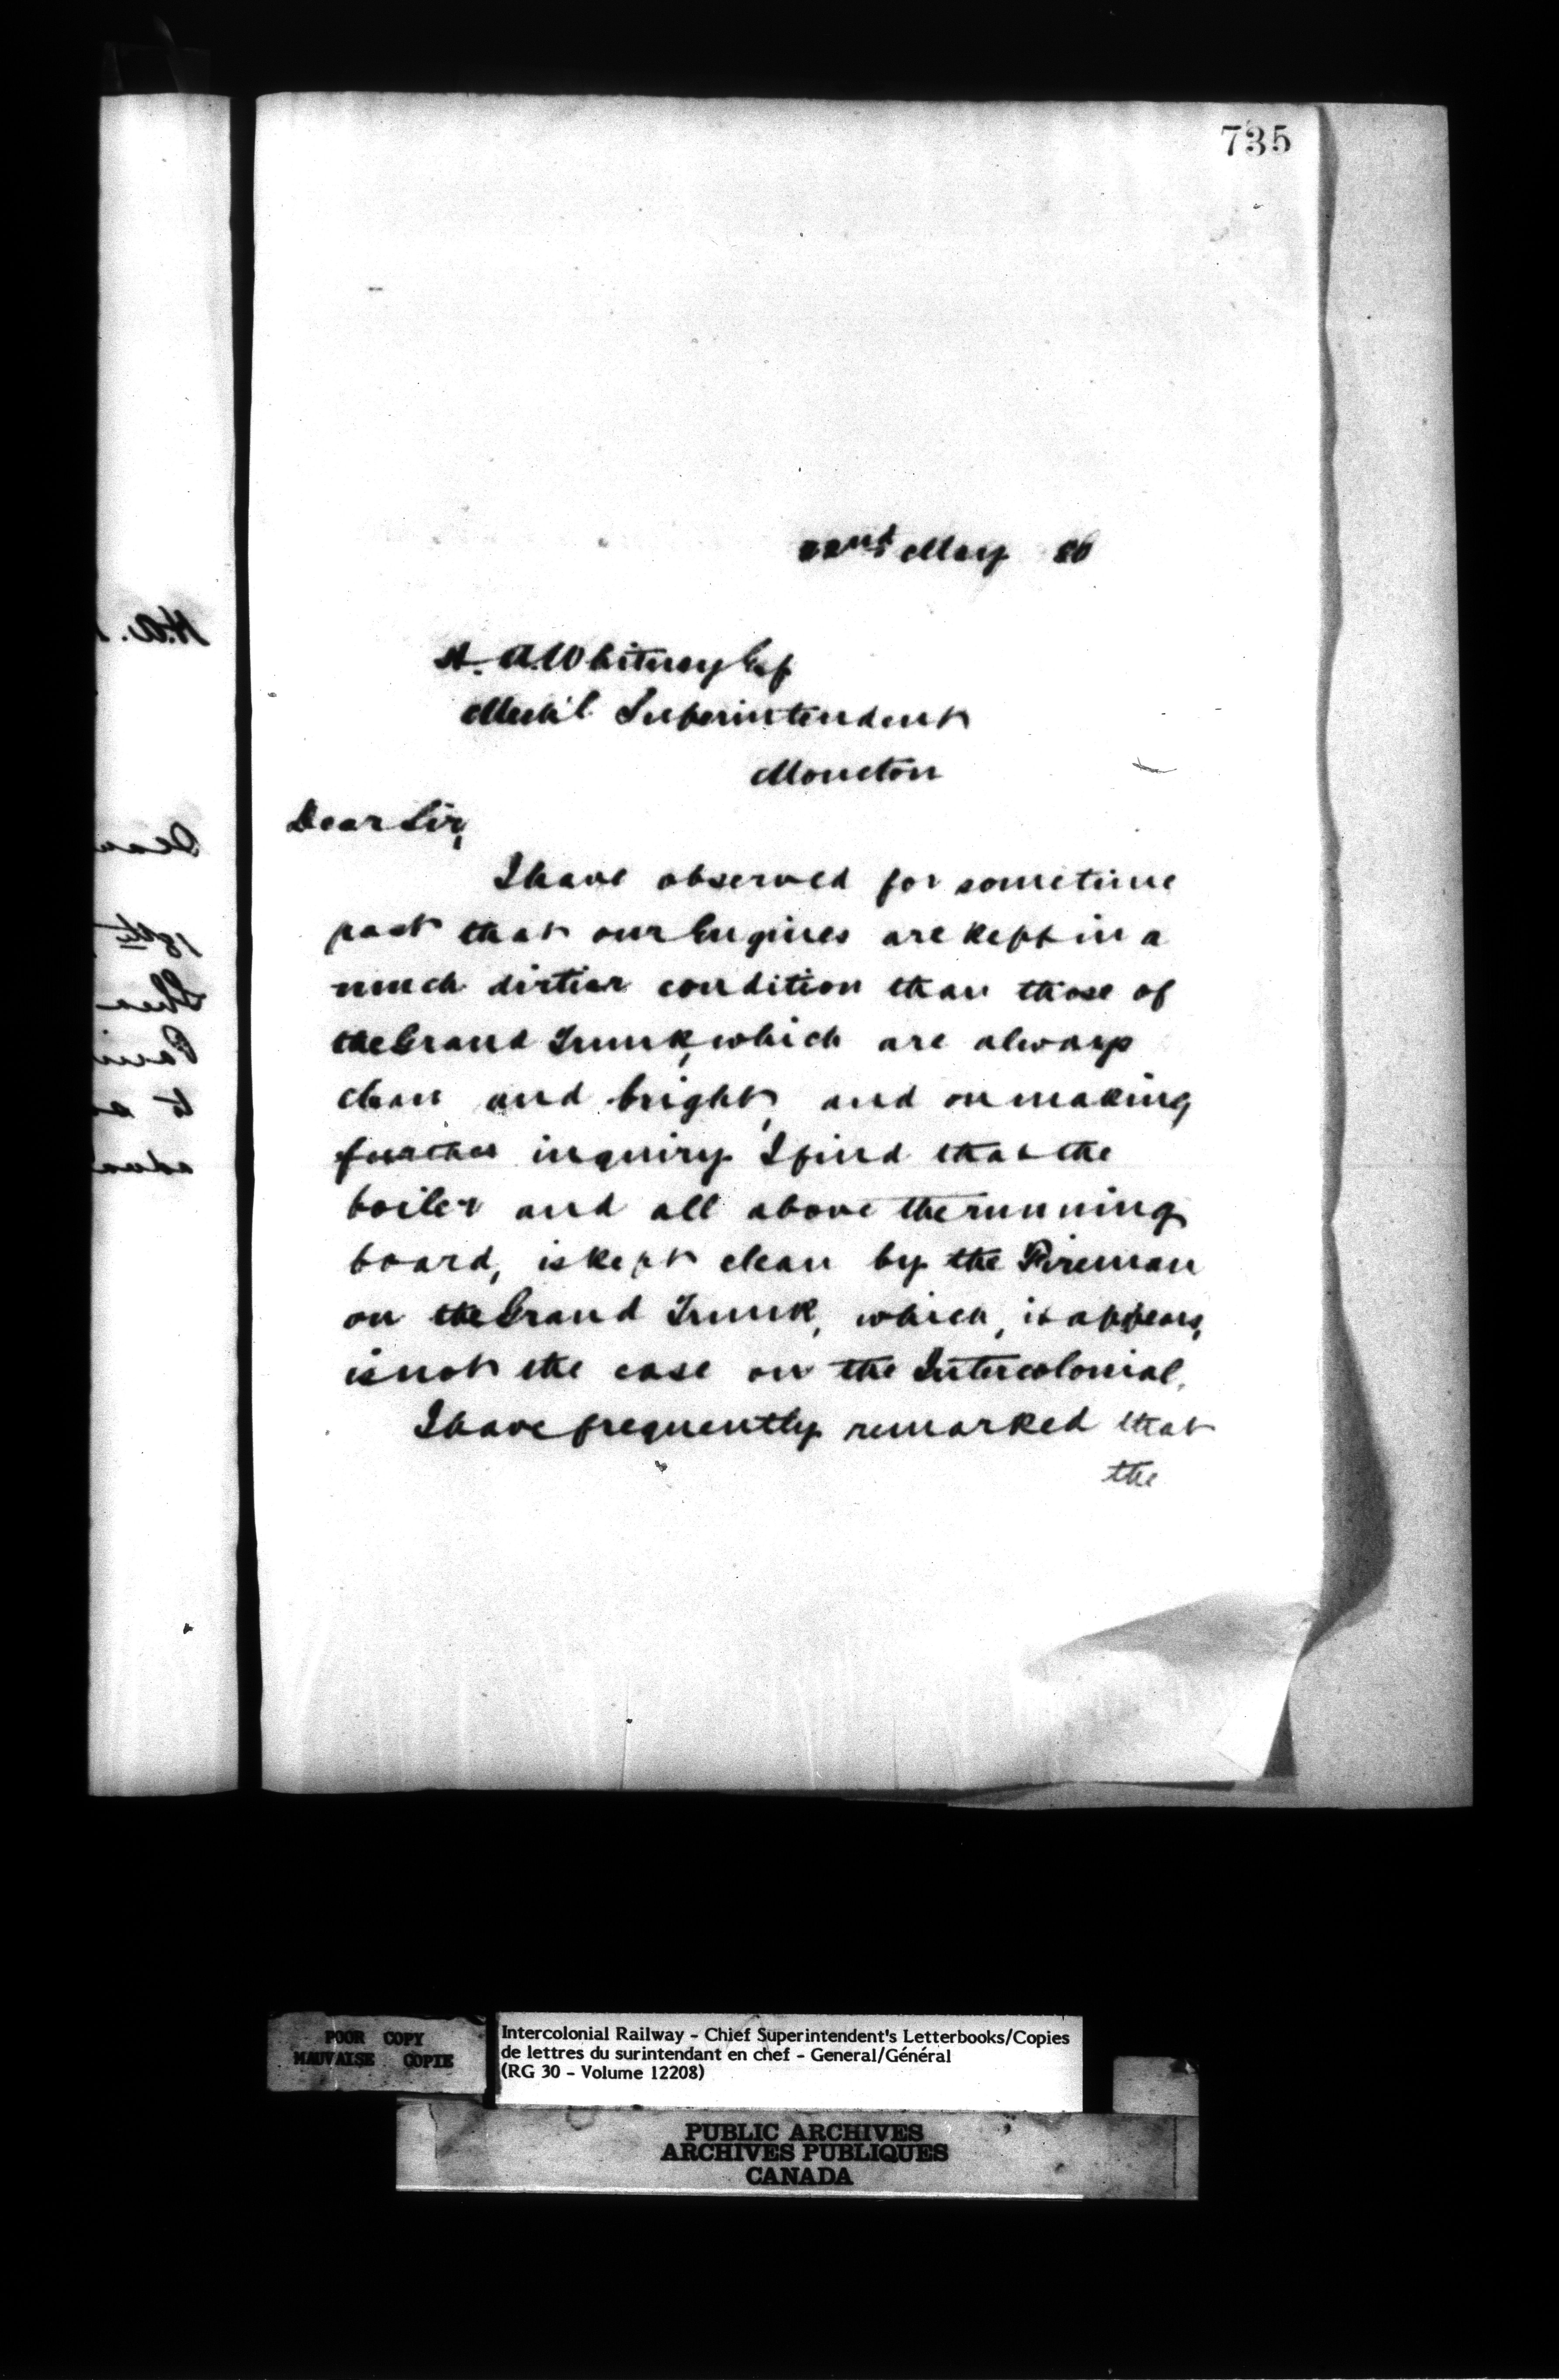 735
22nd May 80
H. A. Whitney Esq
Mech'l Superintendent
Moncton
Dear Sir,
I have observed for sometime
past that our Engines are kept in a
much dirtier condition than those of
the Grand Trunk, which are always
clean and bright, and on making
further inquiry I find that the
boiler and all above the running
board, is kept clean by the Fireman
on the Grand Trunk, which, it appears,
is not the case on the Intercolonial.
I have frequently remarked that
the
POOR COPY
MAUVAISE COPIE
Intercolonial Railway - Chief Superintendent's Letterbooks/Copies
de lettres du surintendant en chef - General/Général
(RG 30 - Volume 12208)
PUBLIC ARCHIVES
ARCHIVES PUBLIQUES
CANADA